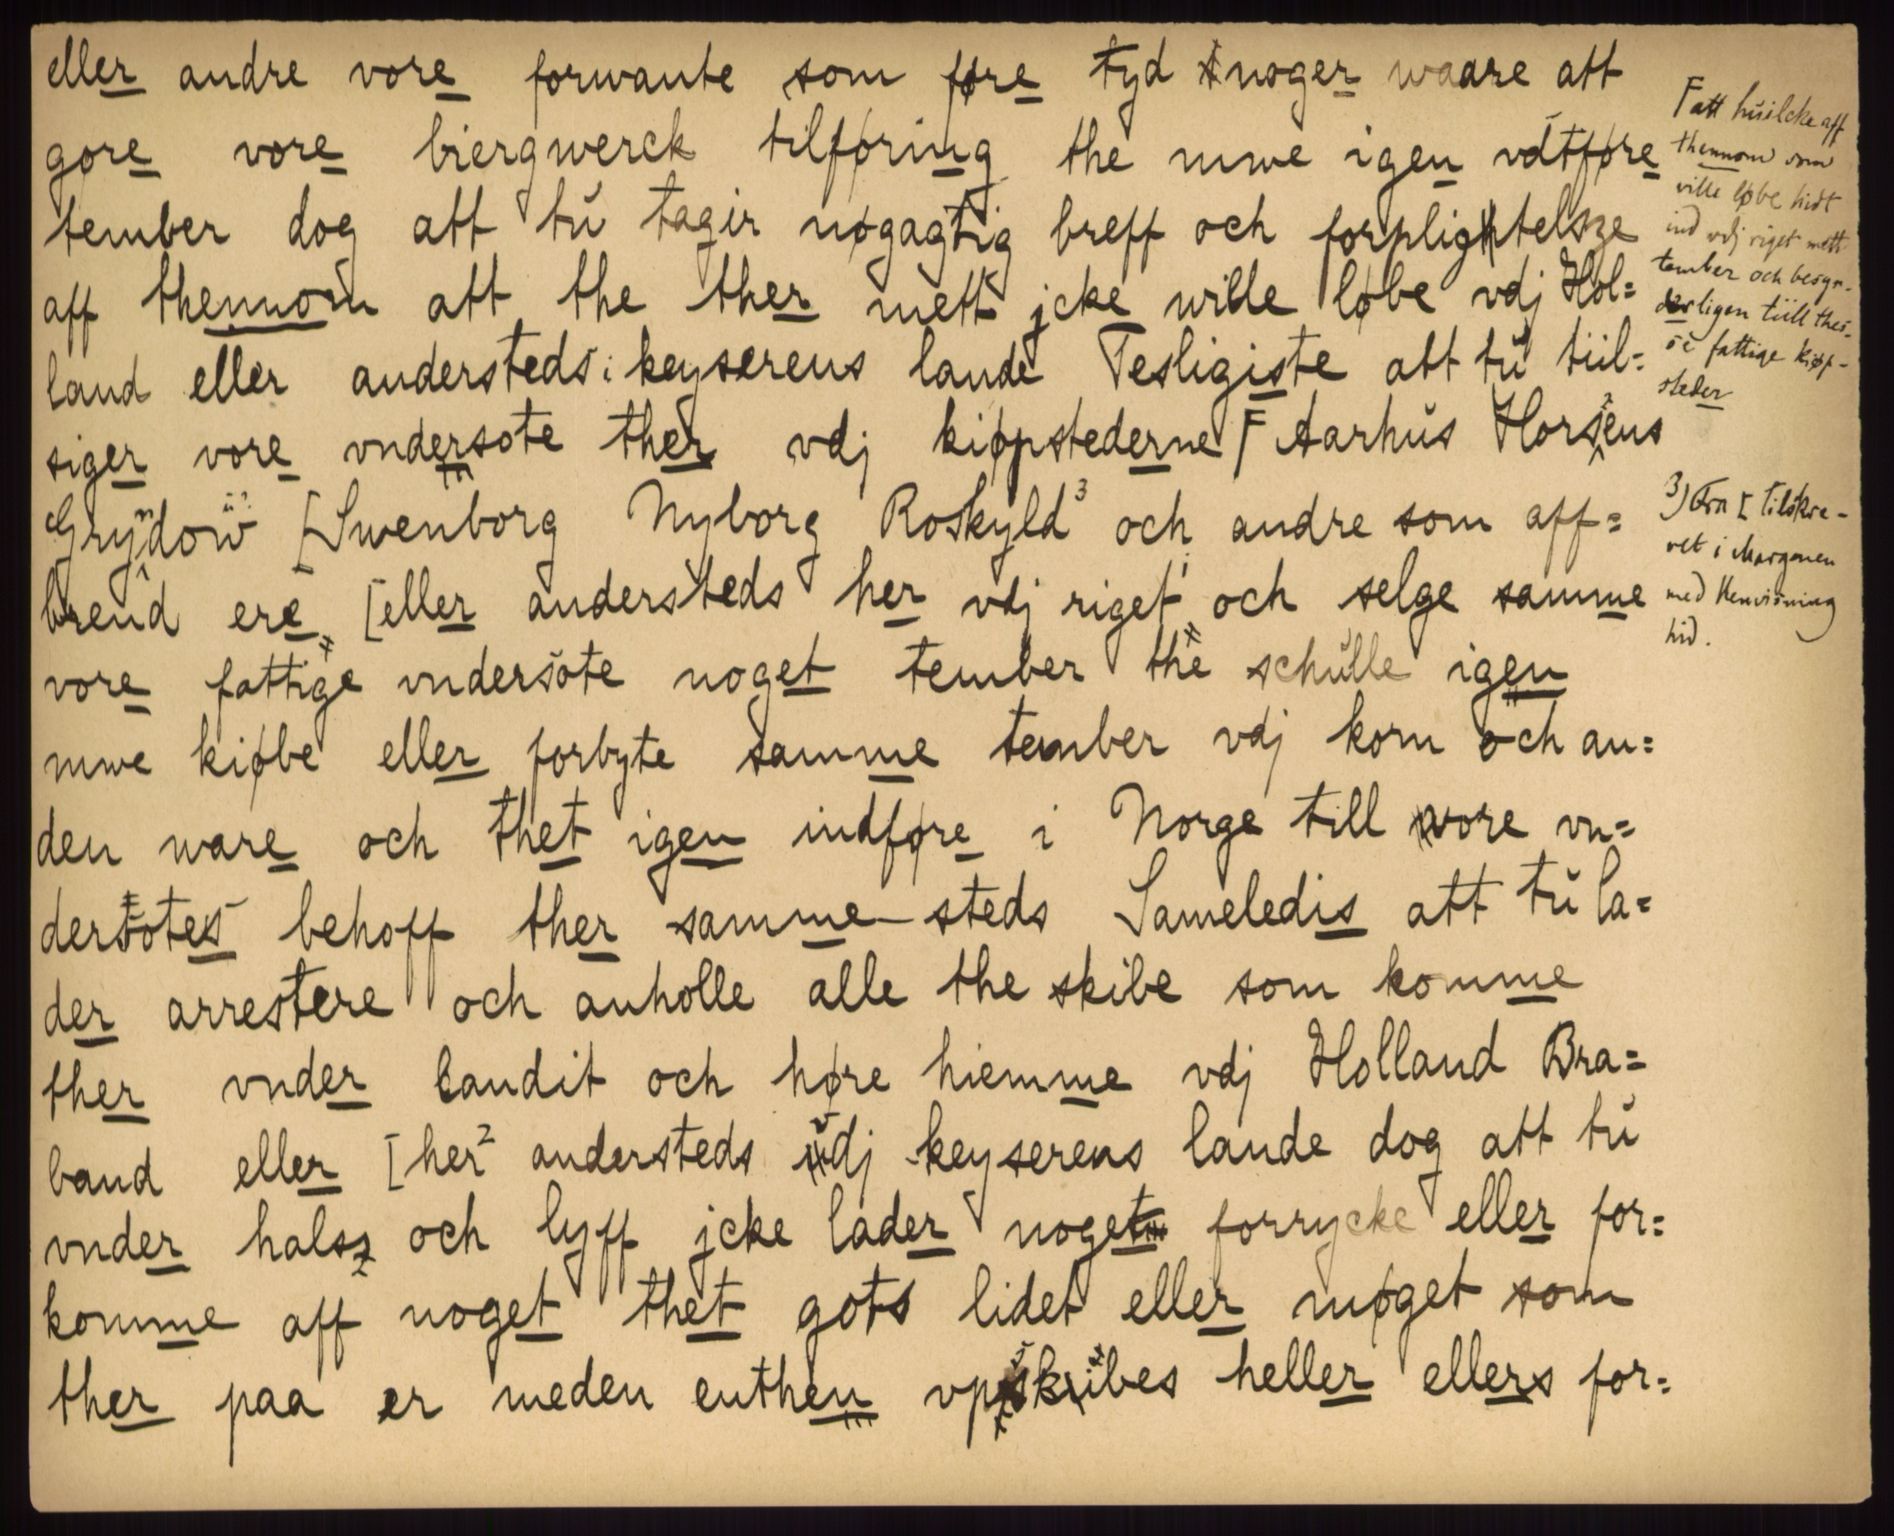 eller andre vore forwante som føre tyd noger waare att
gore vore biergwerck tilføring the mwe igen vdtføre
tember dog att tú tagir nøgagtig breff och forplichtelsze
aff thennom att the ther mett jcke wille løbe vdj Hol=
land eller andersteds i keyserens lande Tesligiste att tú tiil=
siger vore vndersote ther vdj kiøpstederne F Aarhús Horsens
Gryndow [Swenborg Nyborg Roskyld³ och andre som aff=
brend ere [eller andersteds her vdj riget¹ och selge samme
vore fattige vndersote noget tember the schúlle igen
mwe kiøbe eller forbyte samme tember vdj korn och an=
den ware och thet igen indføre i Norge till wore vn=
dersotes behoff ther samme steds Sameledis att tú la=
der arrestere och anholle alle the skibe som komme
ther vnder landit och høre hiemme vdj Holland Bra=
band eller [her² andersteds údj keyserens lande dog att tú
vnder halsz och lyff jcke lader noget forrycke eller for=
komme aff noget thet gots lidet eller møget som
ther paa er meden enthen vpskribes heller ellers for=
F att húilcke aff
thennom som
ville løbe hidt
ind vdj riget mett
tember och besyn-
derligen tiill thes-
se fattige kiøp-
steder
3) Fra [ tilskre-
vet i Margenen
med Henvisning
hid.